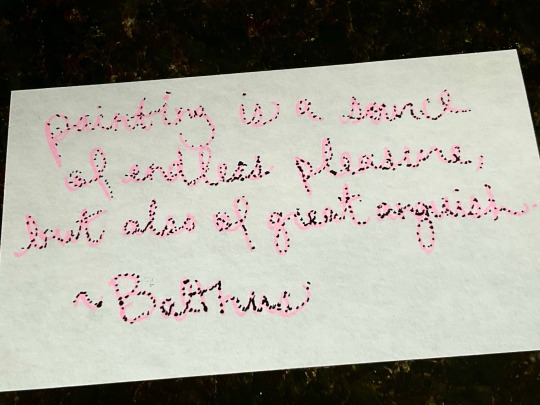 painting is a source
of endless pleasure,
but also of great anguish.
~Balthus